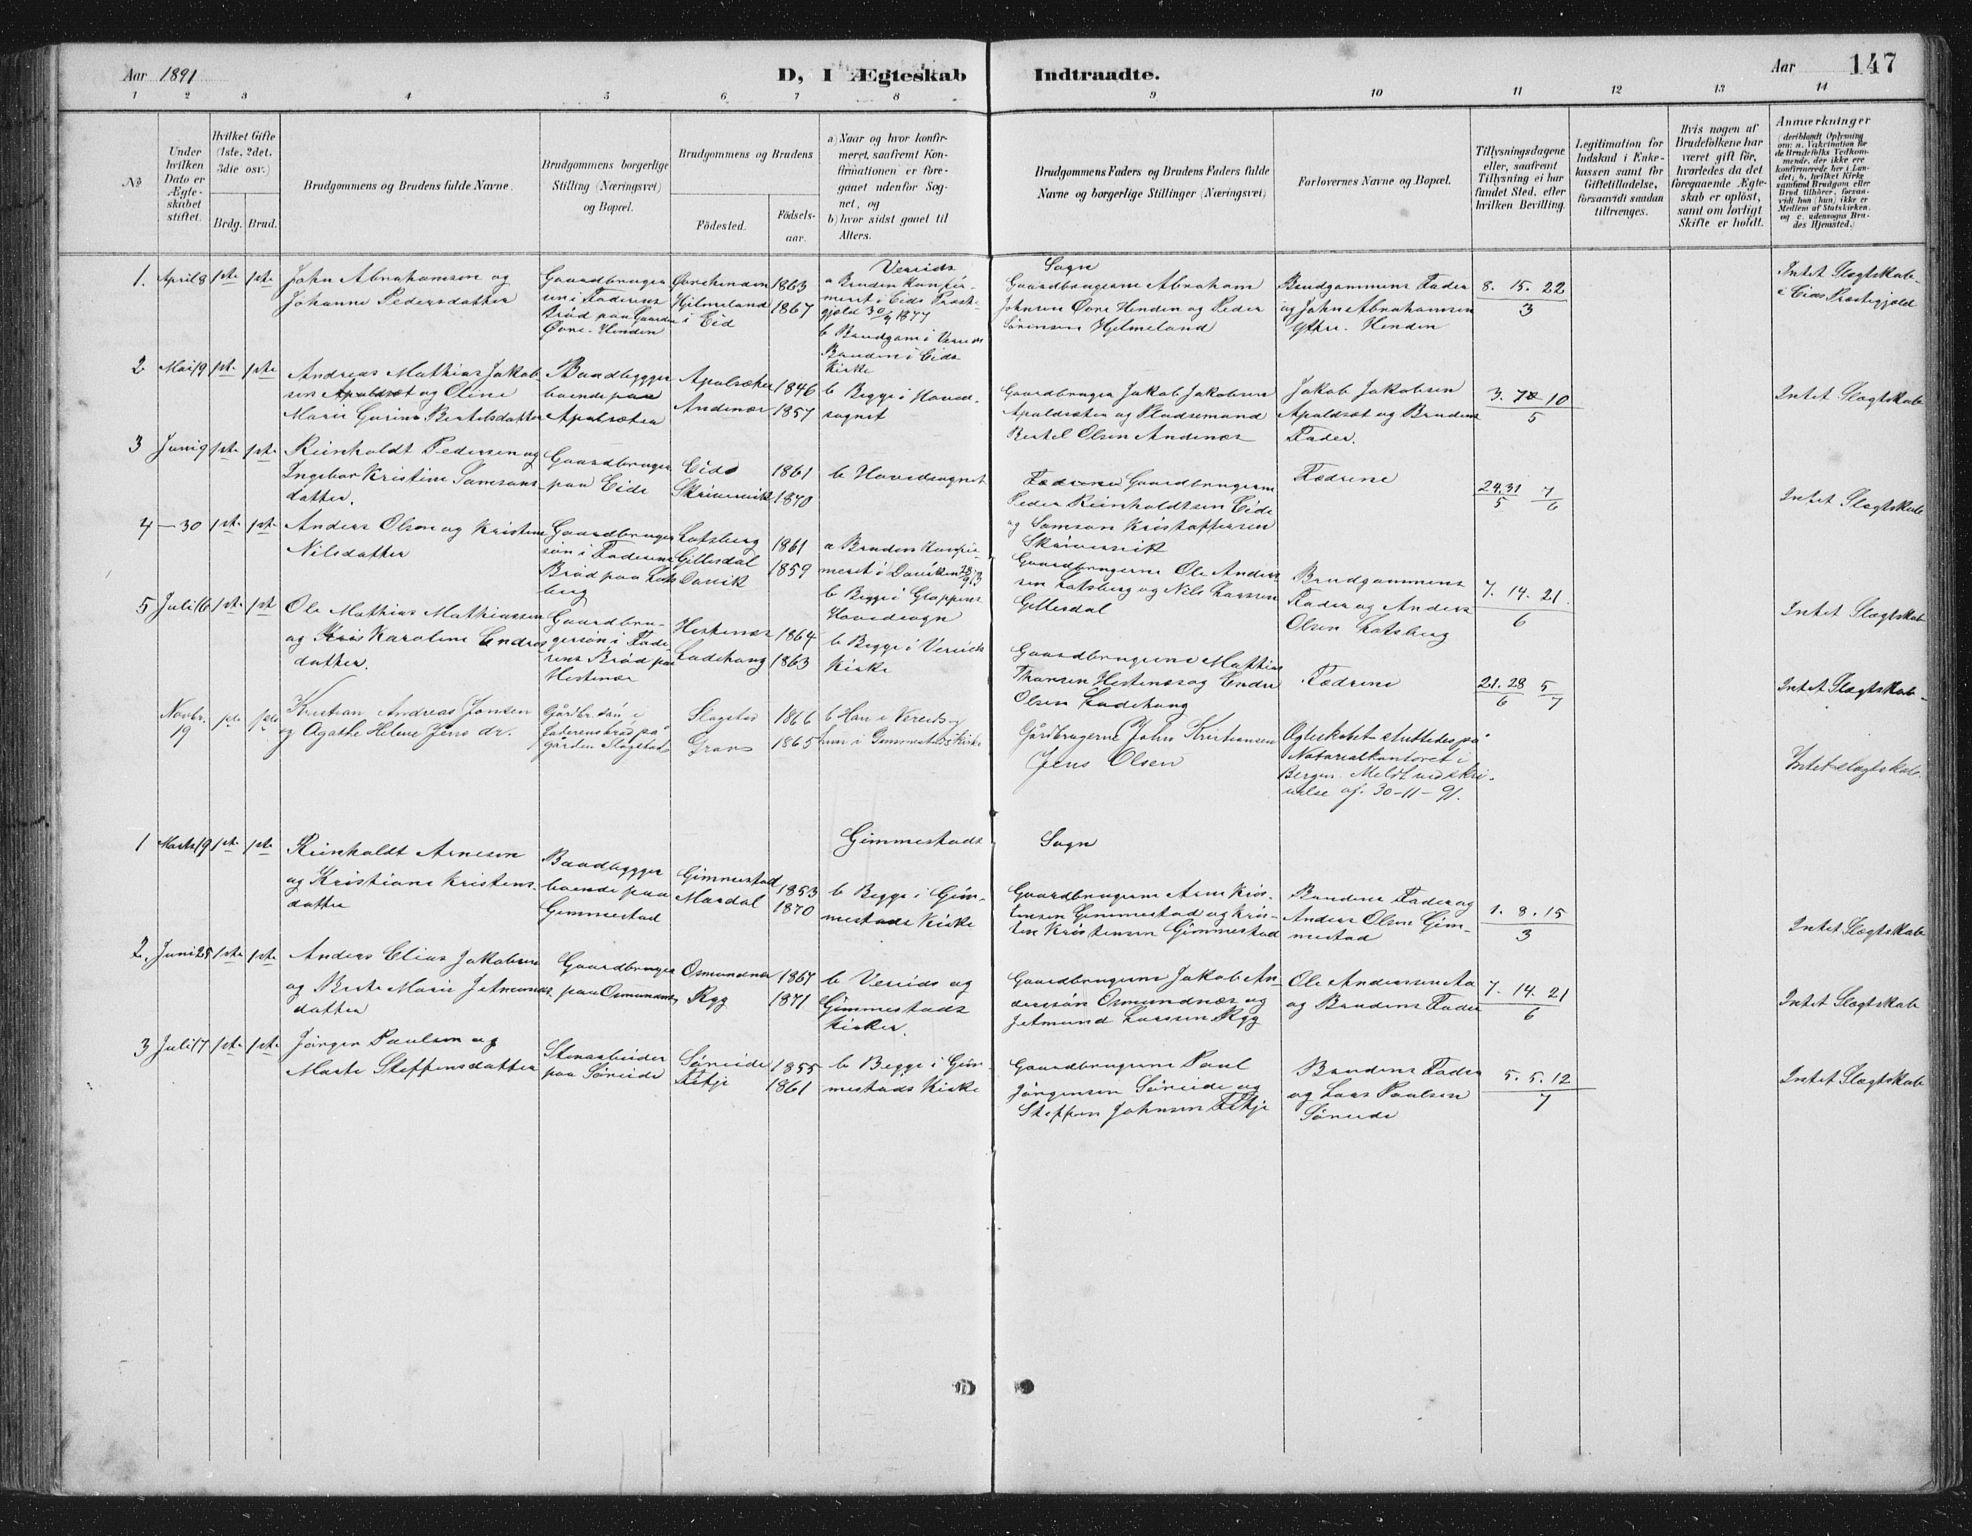 Aar 1891
D, I Ægteskab Indtraadte.
Aar
147
1 2 3 4 5 6 7 8 9 10 11 12 13 14
№
Under hvilken Dato er Ægteskabet stiftet.
Hvilket Gifte (1ste, 2det, 3die osv.)
Brdg. Brud.
Brudgommens og Brudens fulde Navne.
Brudgommens borgerlige Stilling (Næringsvei) og Bopæl.
Brudgommens og Brudens
Födested.
Födselsaar.
a) Naar og hvor konfirmeret, saafremt Konfirmationen er foregaaet udenfor Sognet, og
b) hvor sidst gaaet til Alters.
Brudgommens Faders og Brudens Faders fulde Navne og borgerlige Stillinger (Næringsvei)
Forlovernes Navne og Bopæl.
Tillysningsdagene eller, saafremt Tillysning ei har fundet Sted, efter hvilken Bevilling.
Legitimation for Indskud i Enkekassen samt for Giftetilladelse, forsaavidt saadan tiltrænges.
Hvis nogen af Brudefolkene har været gift för, hvorledes da det foregaaende Ægteskab er oplöst, samt om lovligt Skifte er holdt.
Anmærkninger
Vereids Sogn
1. April 8 1ste 1ste
John Abrahamsen og
Johanne Pedersdatter
Gaardbruger
sön i Faderens
Bröd paa Gaarden
Övre-Henden
Övrehenden
Hjelmeland
i Eid
1863
1867
a Bruden Konfir-
meret i Eids Præst-
gjeld 30/9 1877
b Brudgom i Vereids
Bruden i Eids
Kirke
Gaardbrugerne Abraham
Johnsen Övre Henden og Peder
Sörensen Hjelmeland
Brudgommens Fader
og John Abrahamsen
Yttre-Henden
8. 15. 22
3
Intet Slægtskab
i Eids Præstegjeld
2 Mai 19 1ste 1ste
Andreas Mathias Jakob
sen Apaldsæt og Oline
Marie Gurine Bertelsdatter
Baadbygger
boende paa
Apalsæter
Apalsæter
Andenæs
1846
1857
b Begge i Hoved-
sognet
Gaardbruger Jakob Jakobsen
Apaldsæter og Pladsemand
Bertel Olsen Andenæs
Jakob Jakobsen
Apaldsæt og Brudens
Fader.
3. 10
5
Intet Slægtskab
3 Juni 9 1ste 1ste
Reinholdt Pedersen og
Ingebor Kristine Samsons-
datter.
Gaardbruger
paa Eide
Eide
Skriversvik
1861
1870
b Hovedsognet
Fædrene Gaardbrugerne
Peder Reinholdtsen Eide
og Samson Kristoffersen
Skriversvik
Fædrene
24. 31 7
5 6
Intet Slægtskab
4 — 30 1ste 1ste
Anders Olson og Kristine
Nilsdatter
Gaardbruger
sön i Faderens
Bröd paa Lots
berg
Lotsberg
Gillesdal
Davik
1861
1859
a Bruden Konfir-
meret i Daviken
b Begge i Gloppens
Hovedsogn
Gaardbrugerne Ole Anders
sen Lotsberg og Nils Larssen
Gillesdal
Brudgommens
Fader og Anders
Olsen Lotsberg
7. 14. 21.
6
Intet Slægtskab
5 Juli 16 1ste 1ste
Ole Mathias Mathiassen
og Karoline Endres
datter.
Gaardbru-
gersön i Fade-
rens Bröd paa
Hestenes
Hestenæs
Ladehaug
1864
1863
b Begge i Vereids
Kirke
Gaardbrugerne Mathias
Hestenæs og Endre
Olsen Ladehaug
Fædrene
21. 28 5
6 7
Intet Slægtskab
Novbr. 19 1ste 1ste
Kristian Andreas Jonsen
og Agathe Helene Jens dr.
Gårdbr. sön i
faderens bröd på
gården Slagstad
Slagstad
Grans
1866
1865
b Han i Vereids og
hun i Gimmestads Kirke
Gårdbrugerne John Kristiansen
Jens Olsen
Ægteskabet sluttedes på
Notarialkontoret i
Bergen. Meldt ved skri-
velse af. 30-11-91.
Intet slægtskab.
Gimmestads Sogn
1 Marts 19 1ste 1ste
Reinholdt Arneson
og Kristiane Kristens-
datter
Baadbygger
boende paa
Gimmestad
Gimmestad
Mardal
1853
1870
b Begge i Gim-
mestads Kirke
Gaardbrugerne Arne Kris-
tensen Gimmestad og Kris-
ten Kristensen Gimmestad
Brudens Fader og
Anders Olsen Gim-
mestad
1. 8. 15
3
Intet Slægtskab
2. Juni 25 1ste 1ste
Anders Elias Jakobsen
og Berte Marie Jetmunds
datter
Gaardbruger
paa Osmundnæs
Osmundnæs
Ryg
1867
1871
b Vereids og
Gimmestads
Kirker.
Gaardbrugerne Jakob An-
derssön Osmundnæs og
Jetmund Larssen Ryg
Ole Anderssen Aa
og Brudens Fader
7. 14. 21
6
Intet Slægtskab
3 Juli 17 1ste 1ste
Jörgen Paulsen og
Marte Steffensdatter
Stenarbeider
paa Söreide
Söreide
Fitje
1855
1861
b Begge i Gim-
mestads Kirke
Gaardbrugerne Paul
Jörgensen Söreide og
Steffen Johnsen Fitje
Brudens Fader
og Lars Paulsen
Söreide
5. 5. 12
7
Intet Slægtskab